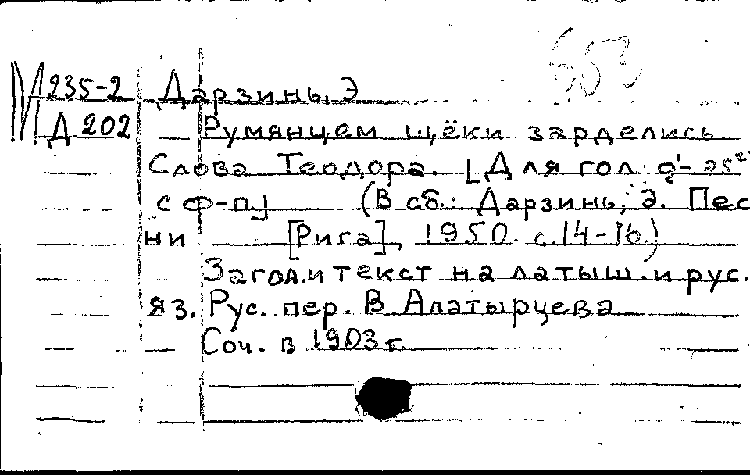 М 235-2 Дарзинь, Э
Д 202 Румянцем щёки зарделись
Слова Теодора. [Для гол
с ф-п] (В сб.: Дарзинь, Э. Пес
ни [Рига], 1950. с. 14-16.)
Загол. и текст на латыш. и рус.
яз. Рус. пер. В. Алатырцева
Соч. в 1903 г.